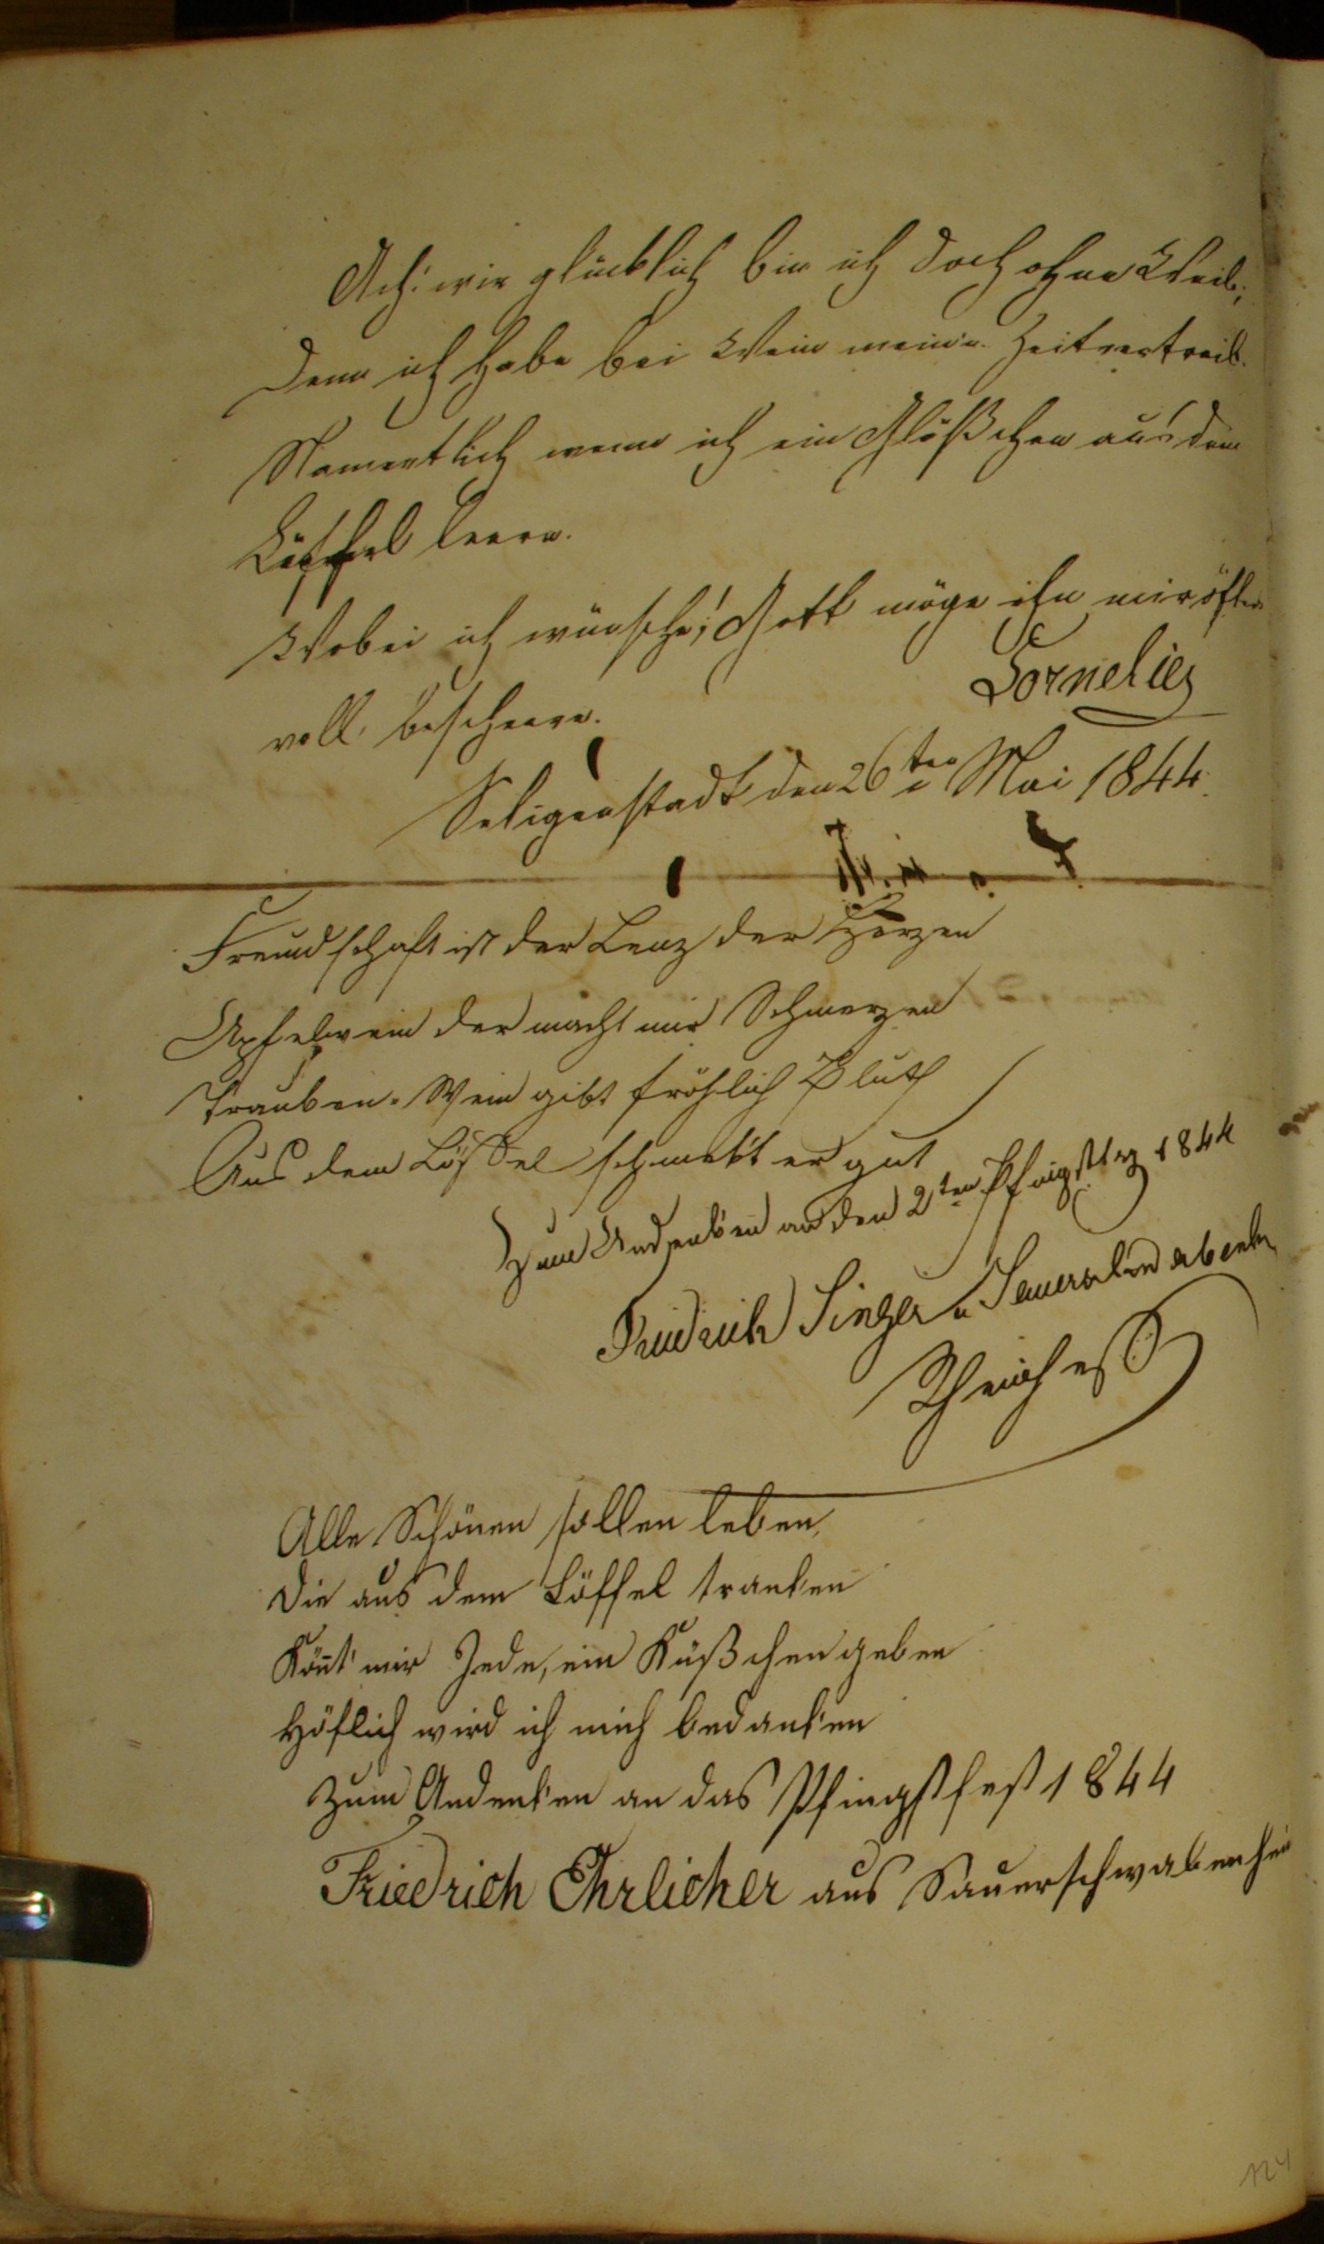 Ach! wie glücklich bin ich doch ohne Weib,
Denn ich habe bei Wein meine Zeitvertreib.
Namentlich wenn ich ein Gläßchen aus dem
Löffel leere.
Wobei ich wünsche! Gott möge ihn mir öfter
voll bescheere.
Cornelius
Seligenstadt den 26ten Mai 1844.
Freundschaft ist der Lenz der Herzen
Apfelwein der macht mir Schmerzen
Trauben-Wein gibt fröhlich Bluth
Aus dem Löffel schmekt er gut
Zum Andenken an den 2ten Pfingsttag 1844
Friedrich Singer
Alle Schönen sollen leben,
Die aus dem Löffel tranken
Könt' mir Jede, ein Küßchen geben
Höflich wird ich mich bedanken
Zum Andenken an das Pfingstfest 1844
Friedrich Ehrlicher aus Sauerschwabenhei
124